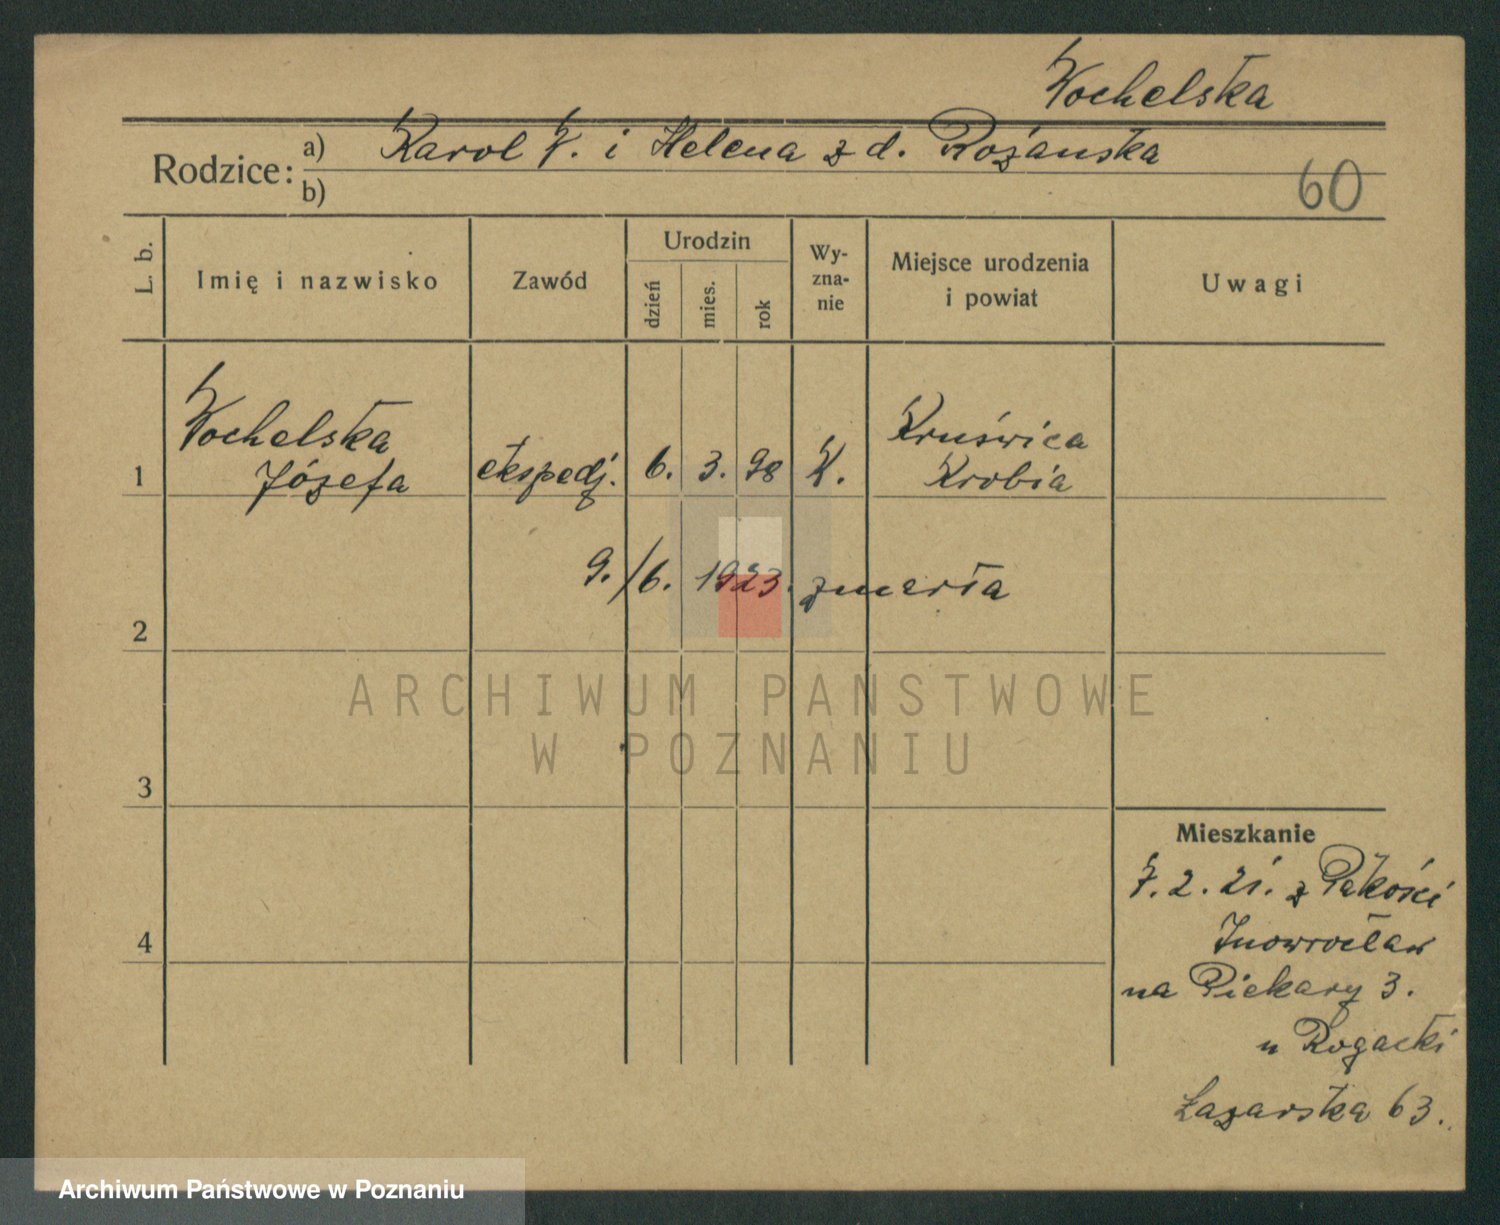 Wochelska
Rodzice: a) Karol W. i Helena z d. Rożańska
b)
60
L. b.
Imię i nazwisko
Zawód
Urodzin
dzień
mies.
rok
Wy-
zna-
nie
Miejsce urodzenia
i powiat
Uwagi
Wochelska
1 Józefa ekspedj. 6. 3. 98 K. Kruświca
Krobia
9./6. 1923. zmarła
2
ARCHIWUM PAŃSTWOWE
W POZNANIU
3
Mieszkanie
7. 2. 21. z Pakości
Inowrocław
4
na Piekary 3.
u Rogacki
Łazarska 63.
Archiwum Państwowe w Poznaniu